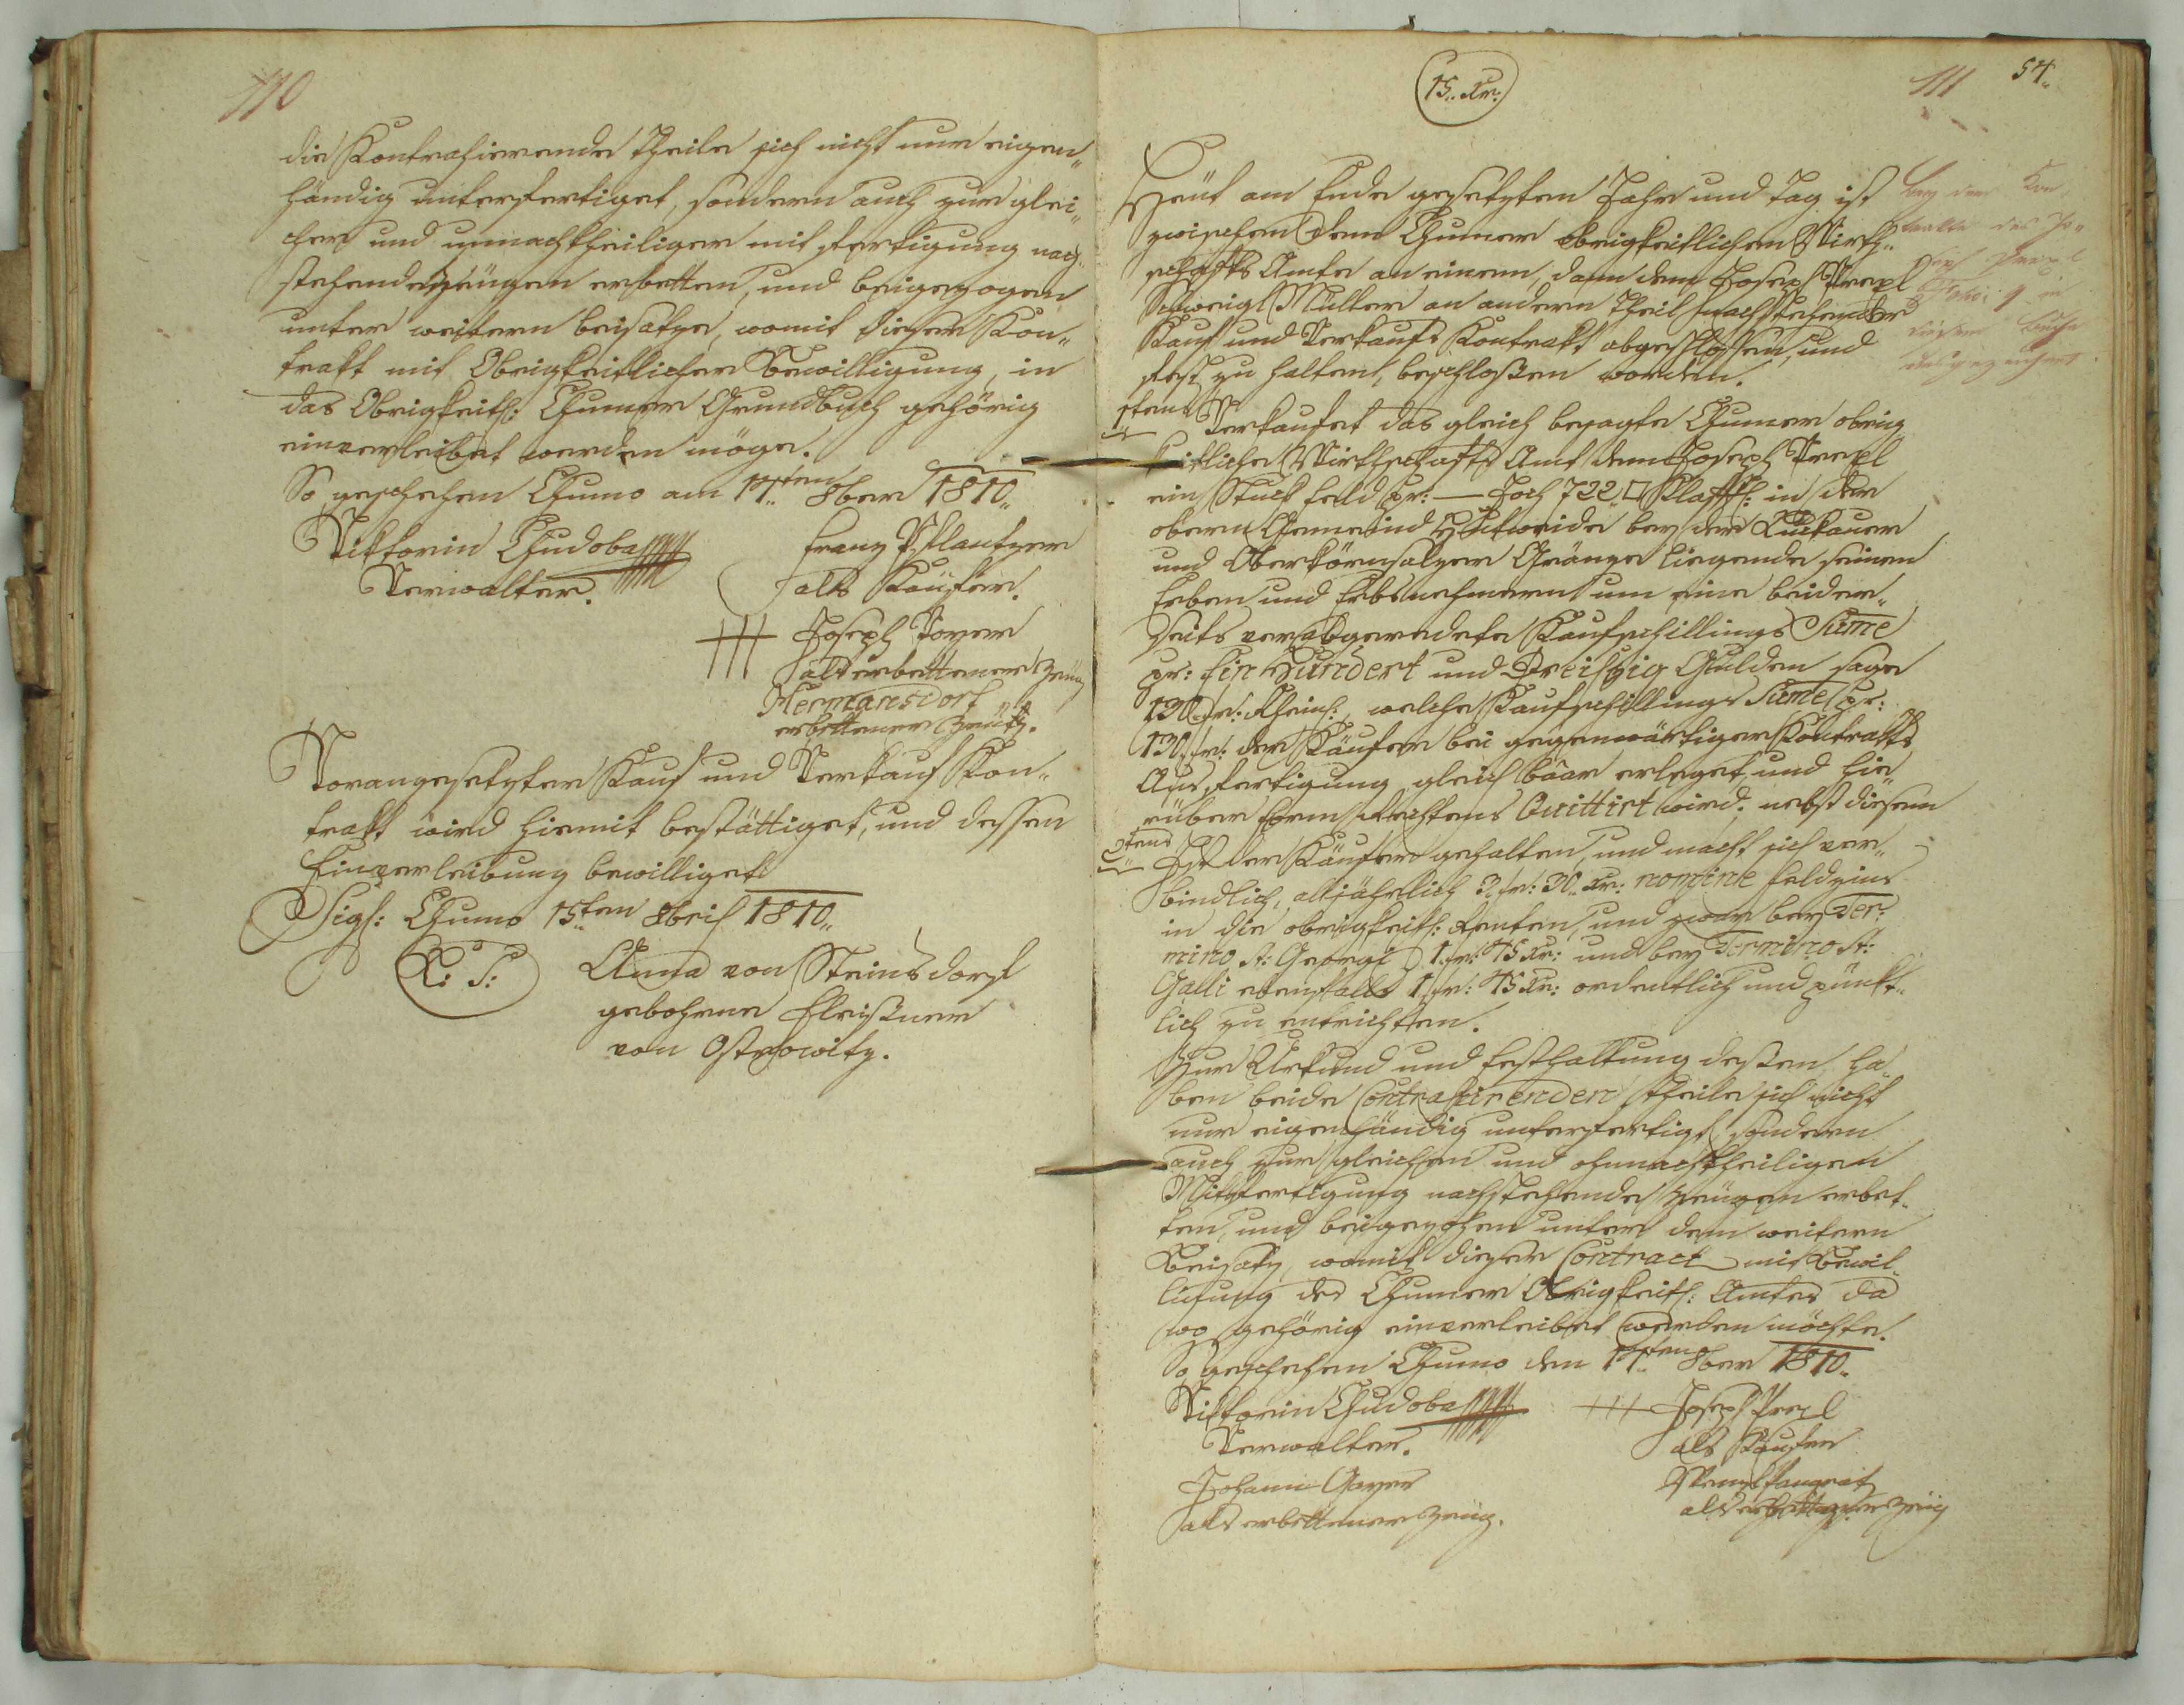 110
die Kontrahierende Theile sich nicht nur eigen„
händig unterfertiget, sondern auch zur glei„
chen und unnachtheiligen mit fertigung nach„
stehende Zeugen erbetten, und beigezogen
unter weitern beisatze, womit dieser Kon„
trakt mit Obrigkeitlicher Bewilligung, in
das Obrigkeitl: Chumer Grundbuch gehörig
einverleibet werden möge.
So geschehen Chumo am 11ten 8ber 1810„
Viktorin Chudoba
Verwalter.
Franz Pflantzer
als Käufer.
+++ Joseph Poyer
als erbettener Zeüg
Hermansdorf
erbettener Zeüg.
Vorangesetzter Kauf und Verkauf Kon„
trakt wird hiemit bestättiget, und dessen
Einverleibung bewilliget
Sigl: Chumo 15ten 8bris 1810„
L: S:
Anna von Steinsdorf
gebohrne Eleißner
von Ostrowitz.
15„ Xr:
111
54„
Heut am Ende gesetzten Jahr und Tag ist
zwischen dem Chumer obrigkeitlichen Wirth„
schafts Amte an einem, dann dem Joseph Prexl
Müller an andern Theil nachstehender
Kauf und Verkaufs Kontrakt abgeschlossen, und
fest zu halten, beschloßen worden.
1stens Verkaufet das gleich besagte Chumer obrig
keitliche Wirthschafts Amt dem Joseph Prexl
ein Stuck Feld pr: — Joch 722 □ Klaft: in der
obern Gemeind Hutweide bey der Luckauer
und Oberkörnsalzer Gränze liegende seinen
Erben und Erbsnehmern um eine beider„
seits verabgeredete Kaufschillings Sum̅e
pr: Ein Hundert und Dreißig Gulden sage
130 fr: Rheinl:, welche Kaufschillings Sum̅e pr:
130 fr: der Käufer bei gegenwärtiger Kontrakts
Ausfertigung gleich baar erleget, und hie„
rüber form Rechtens Quittirt wird. nebst diesem
2tens Ist der Käufer gehalten, und macht sich ver„
bindlich, alljährlich 3 fr: 30„ Xr: nomine Feldzins
in die obrigkeitl: Renten, und zwar bey Ter:
mino St: Georgi 1 fr: 45 Xr: und bey Termino St:
Galli ebenfalls 1 fr: 45 Xr: ordentlich und pünkt„
lich zu entrichten.
Zur Urkund und Festhaltung deßen ha„
ben beide Contrahirenden Theile sich nicht
nur eigenhändig unterfertigt, sondern
auch zur gleichen und ohnnachtheiligen
Mitfertigung nachstehende Zeügen erbet„
ten, und beigezohen unter dem weitern
Beisatz, womit dieser Contract mit Bewil„
ligung des Chumer Obrigkeitl: Amtes da
wo gehörig einverleibet werden möchte.
So geschehen Chumo den 11tens 8ber 1810„
Viktorin Chudoba
Verwalter.
+++ Joseph Prexl
als Käufer
Johann Gayer
als erbettener Zeüg.
als erbettener Zeüg